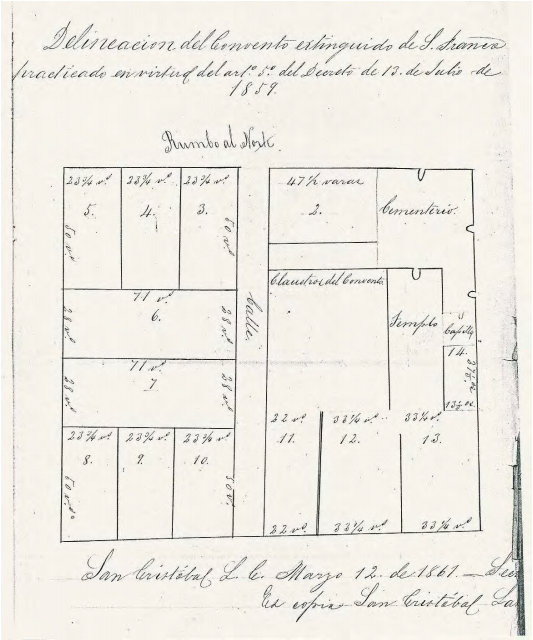 Delineacion del Convento extinguido de S. Franco
practicado en virtud del arto. 5o. del Decreto de 13. de Julio de
1859.
Rumbo al Norte.
23¾ vs. 23¾ vs. 23¾ vs.
5. 4. 3.
50 vs. 50 vs.
47½ varas
2.
Cementerio.
71 vs.
6.
28 vs. 28 vs.
Calle.
Claustros del Convento
Templo
Capilla
14.
27½ vs.
13½ vs.
71 vs.
7
28 vs. 28 vs.
23¾ vs. 23¾ vs. 23¾ vs.
8. 9. 10.
50 vs. 50 vs.
22 vs. 33¼ vs. 33¼ vs.
11. 12. 13.
22 vs. 33¼ vs. 33¼ vs.
San Cristóbal L. C. Marzo 12. de 1861. —
Es copia San Cristóbal